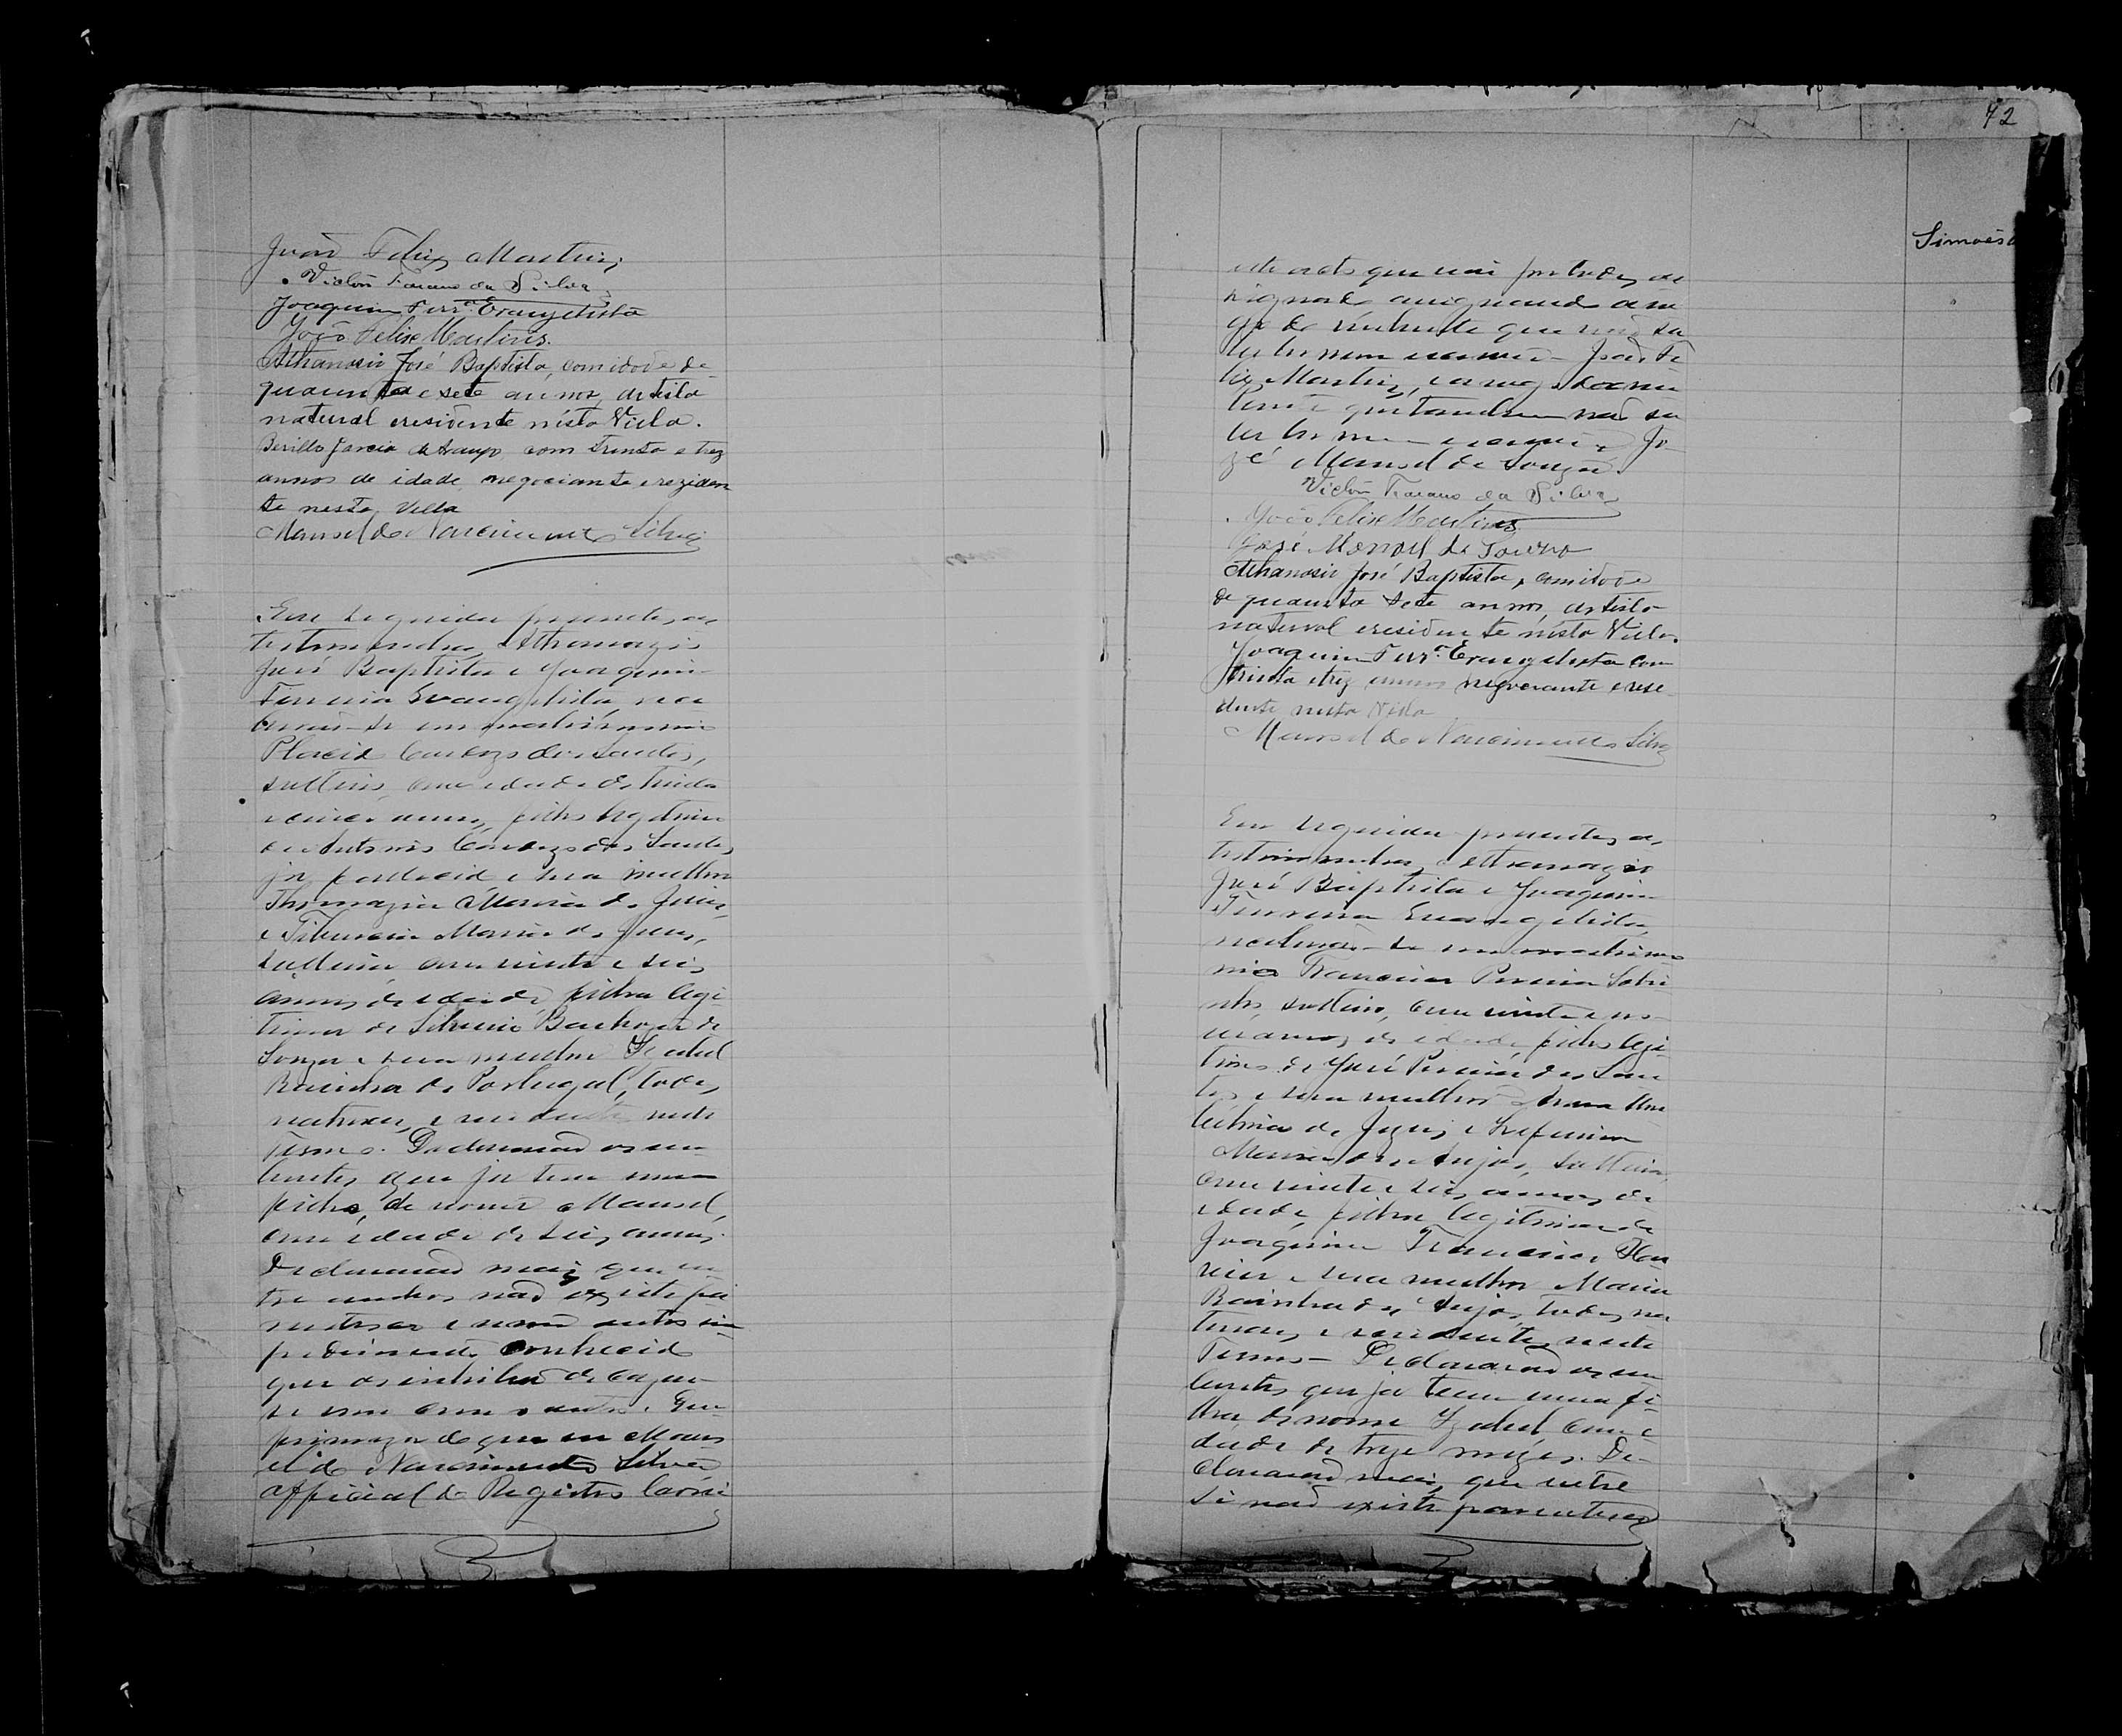 João Felix Martins,
Victor Trarano da Silva
Joaquim Ferrª. Evangelista
João Felix Martins.
Athanasio José Baptista, com idade de
quarenta e sete annos, artista
natural e residente nesta Villa.
Berillo Garcia de Araujo com trinta e trez
annos de idade negociante e reziden
te nesta Villa
Manoel do Nascimento Silva
Em seguida presentes as
testemunhas Athanazio
José Baptista e Joaquim
Ferreira Evangelista, rece
berão-se em matrimonio
Placido Cardozo dos Santos,
solteiro, com idade de trinta
e cinco annos, filho legitimo
de Antonio Cardozo dos Santos,
já fallecido e sua mulher
Thomazia Maria de Jesus,
e Tiburcia Maria de Jesus,
solteira com vinte e seis
annos de idade, filha legi-
tima de Silverio Barboza de
Souza e sua mulher Izabel
Rainha de Portugal, todos
naturaes e residentes neste
Termo. Declararão os nu
bentes que já tem um
filho, de nome Manoel,
com idade de seis annos.
Declararão mais que en
tre ambos não existe pa
rentesco e nem outro im
pedimento conhecido
que os inhiba de casar-
se um com o outro. Em
firmeza do que eu Mano
el do Nascimento Silva
official do Registro
este acto que vai por todos as
signado assignando a ro
go do nubente que não sa
be ler nem escrever João Fe
lix Martins, e a rogo da nu
bente que tambem não sa
be ler nem escrever Jo-
zé Manoel de Souza.
Victor Trarano da Silva
João Felix Martins
José Manoel de Souza
Athanasio José Baptista, com idade
de quarenta e sete annos, artista
natural e residente nesta Villa.
Joaquim Ferrª. Evangelista com
trinta e trez annos negociante e rese
dente nesta Villa
Manoel do Nascimento Silva
Em seguida presentes as
testemunhas Athanazio
José Baptista e Joaquim
Ferreira Evangelista,
receberão-se em matrimo
nio Francisco Pereira Sobri
nho, solteiro, com vinte e no
ve annos de idade filho legi
timo de José Pereira dos San
tos e sua mulher Anna
de Jezus, e
Maria dos Anjos, solteira,
com vinte e seis annos de
idade, filha legitima de
Joaquim Francisco
e sua mulher Maria
Rainha dos Anjos, todos na
turaes e residentes neste
Termo - Declararão os nu
bentes que já teem uma fi-
lha, de nome Izabel com i-
dade de treze mezes. De-
clararão mais, que entre
si não existe parentesco
72
Simões